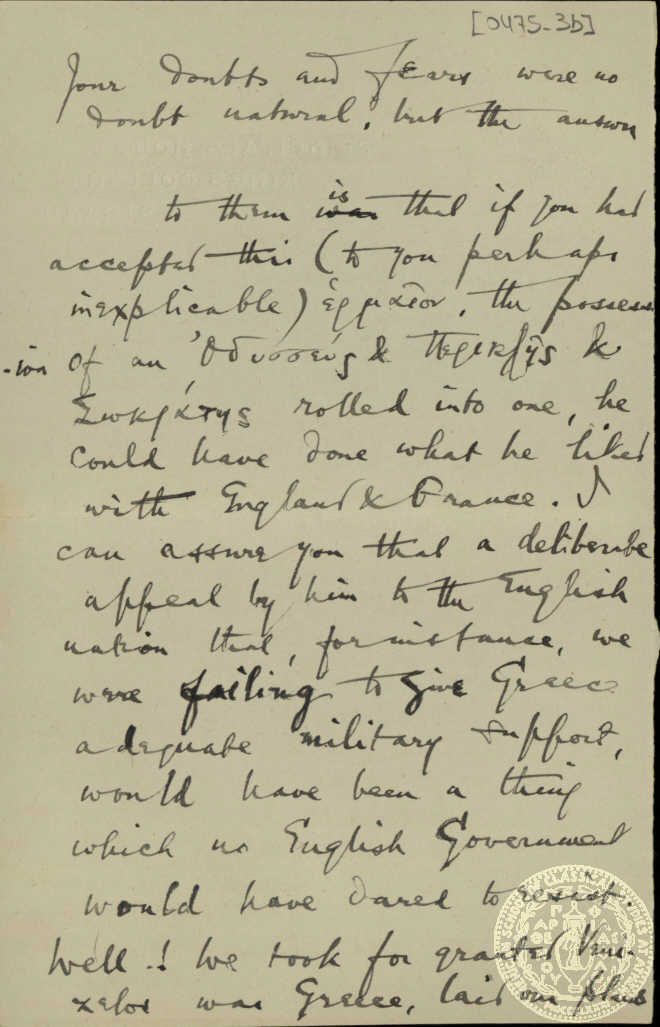 [0475-3b]
Your doubts and fears were no
doubt natural; but the answer
to them is was that if you had
accepted this (to you perhaps
inexplicable) ἑρμαῖον, the possess
-ion of an Ὀδυσσεύς & Περικλῆς &
Σωκράτης rolled into one, he
could have done what he liked
with England & France. I
can assure you that a deliberate
appeal by him to the English
nation that, for instance, we
were failing to give Greece
adequate military support,
would have been a thing
which no English Government
would have dared to resist.
Well! We took for granted Veni-
zelos was Greece, laid our plans